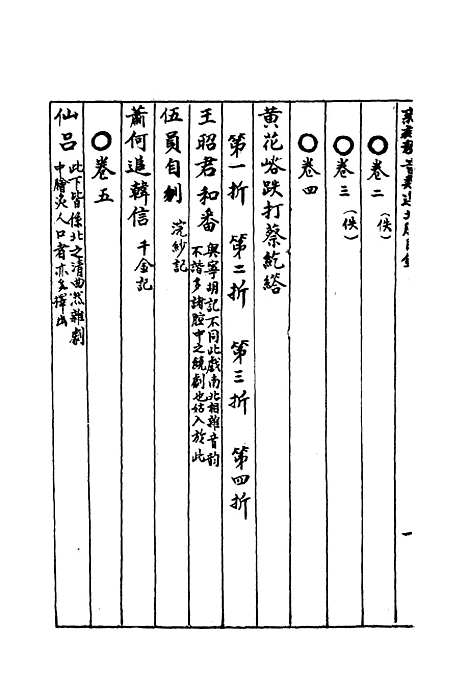 ○卷二（佚）
○卷三（佚）
○卷四
黃花峪跌打蔡䊾縖
第一折 第二折 第三折 第四折
王昭君和番 與寧胡記不同此戲南北相雜音韵
不諧多諸腔中之統劇也估入於此
伍員自刎 浣紗記
蕭何追韓信 千金記
○卷五
仙呂 此下皆係北之清曲然雜劇
中膾炙人口者亦多擇出
一